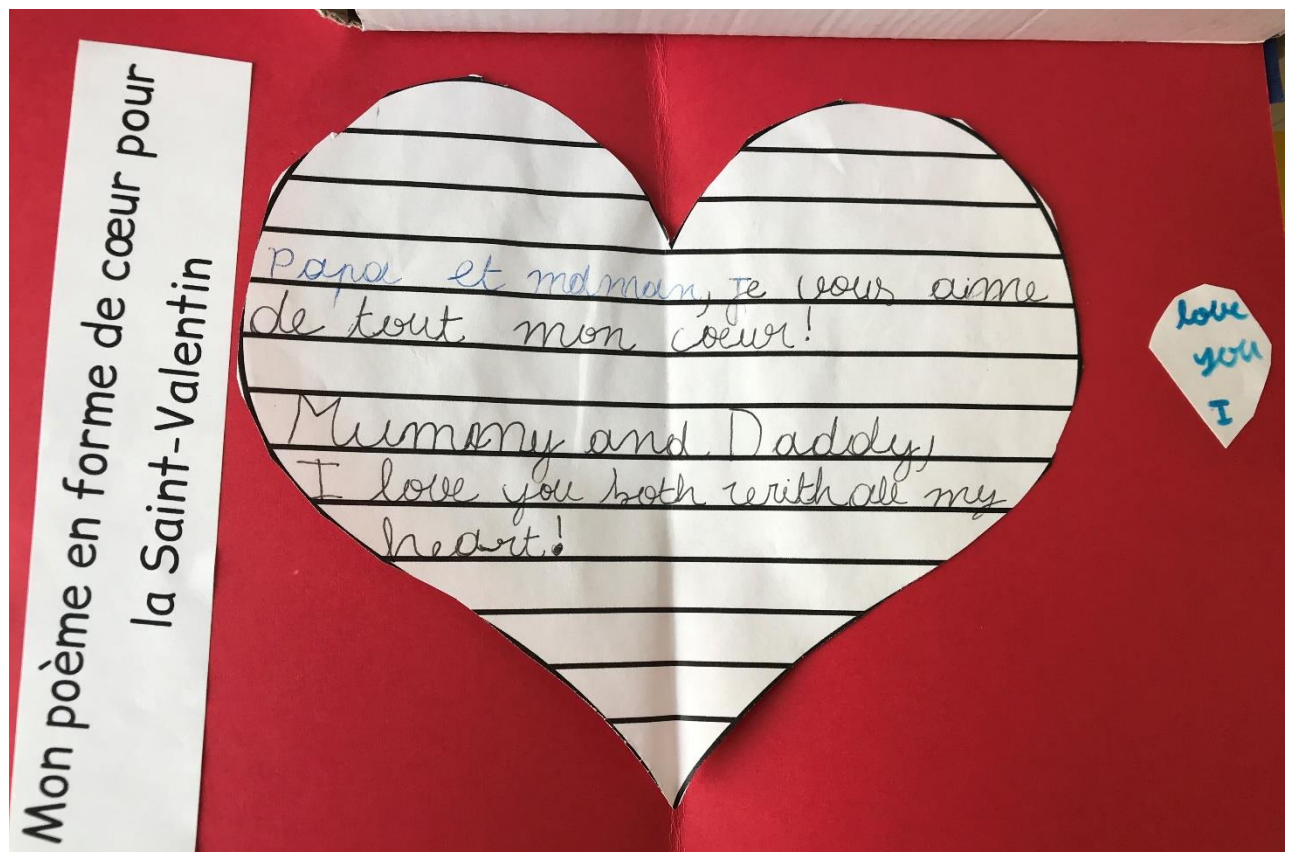 Mon poème en forme de cœur pour
la Saint-Valentin
Papa et maman, je vous aime
de tout mon coeur!
Mummy and Daddy,
I love you both with all my
heart!
love
you
I